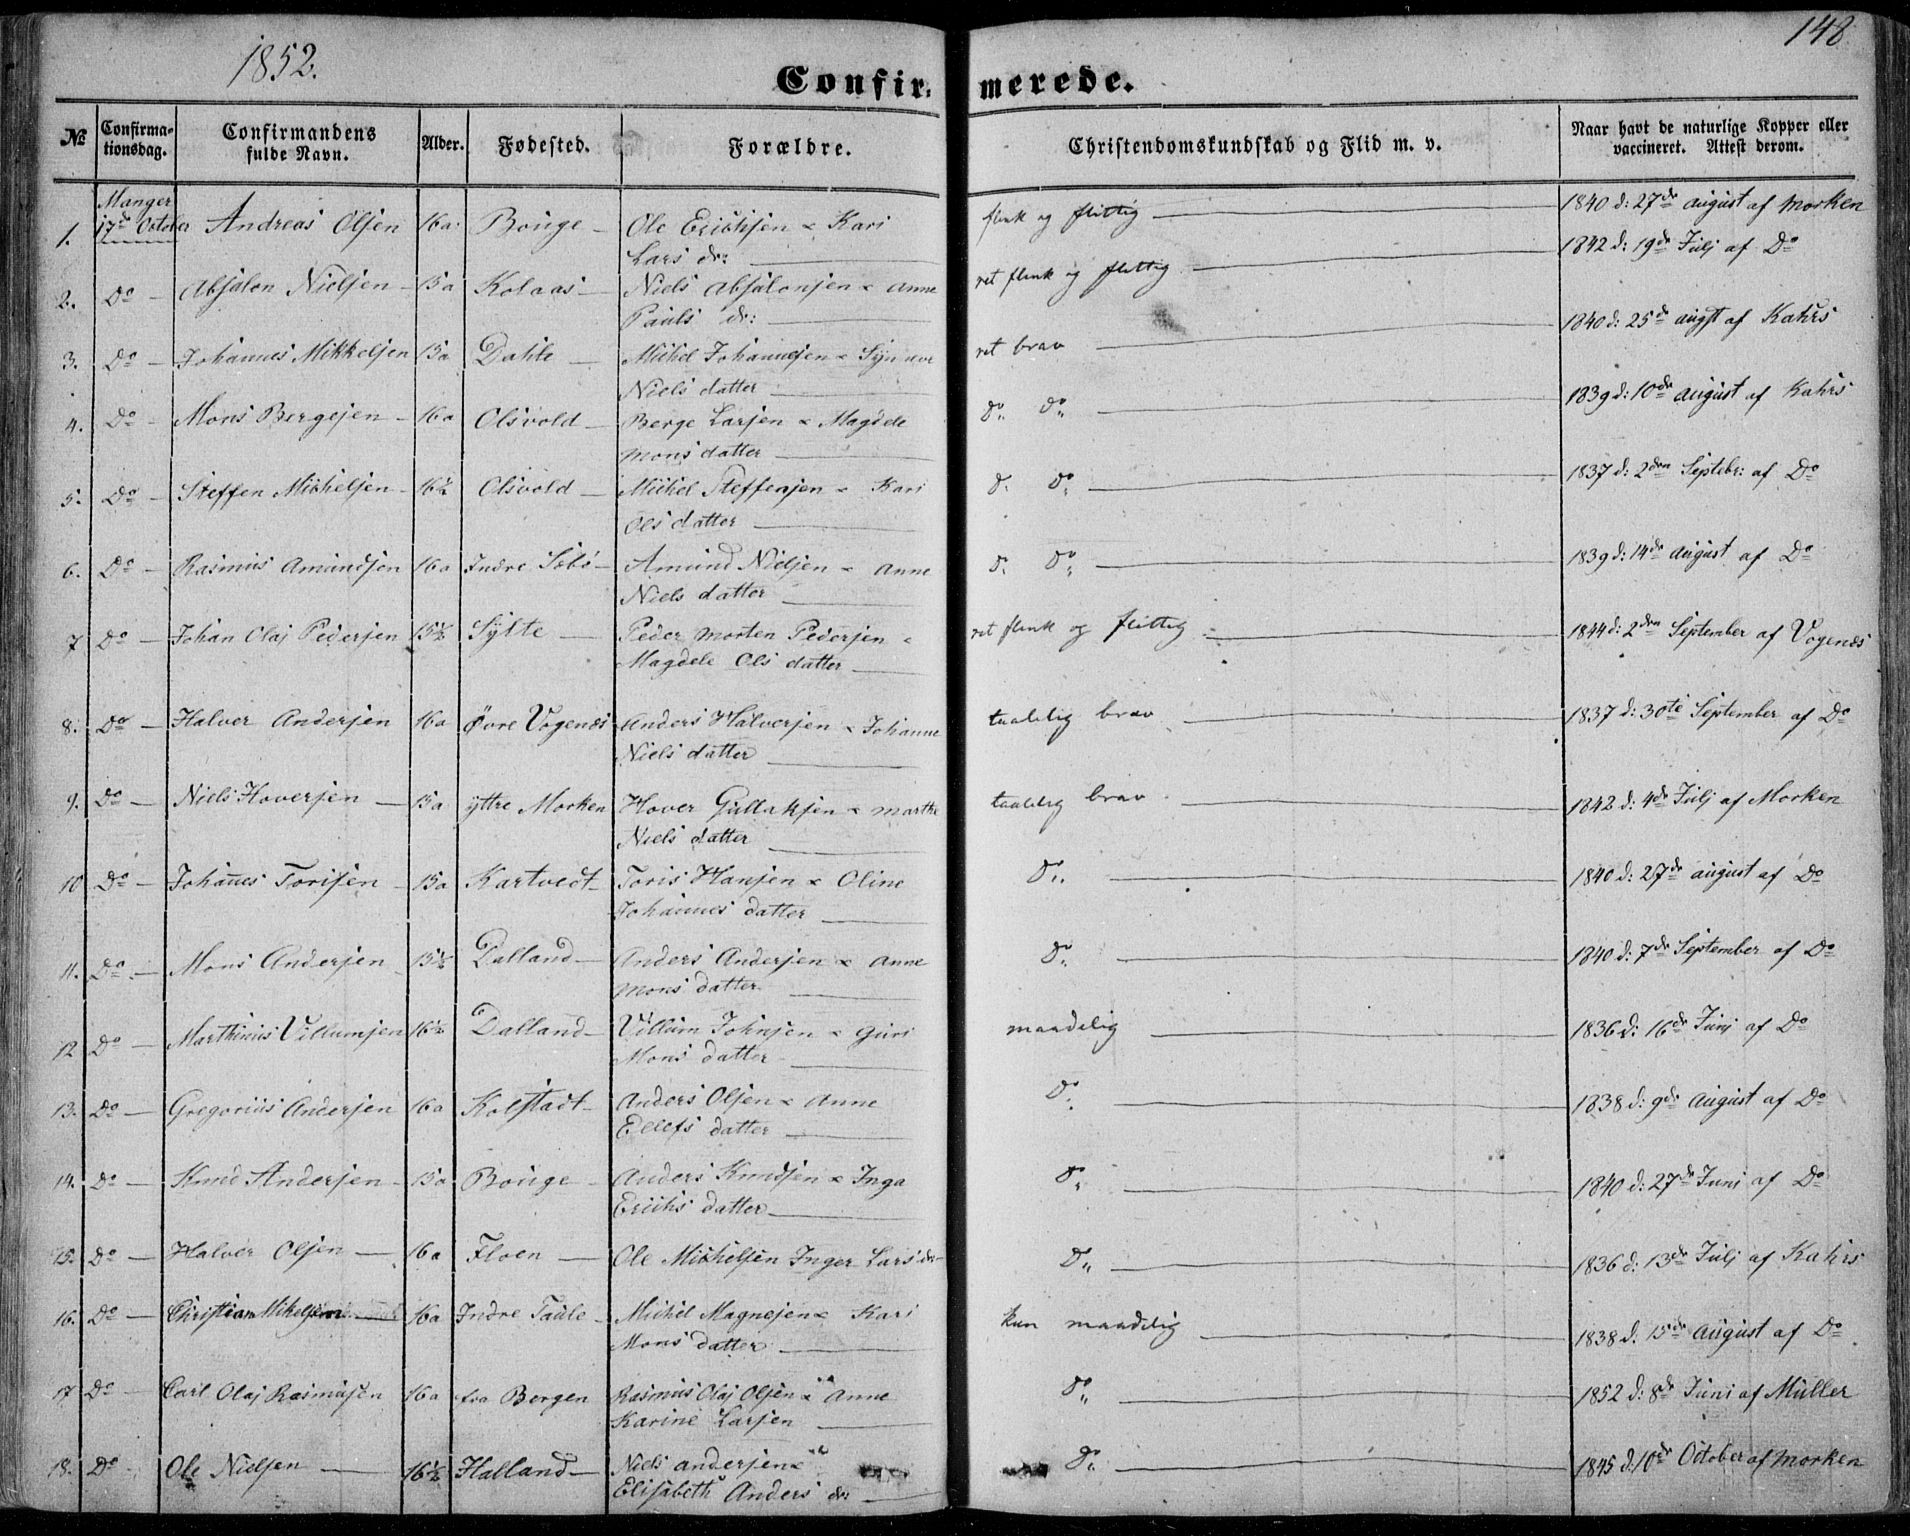 1852.
148
Confir- merede.
№ Confirma-tionsdag. Confirmandens fulde Navn. Alder. Fødested. Forældre. Christendomskundskab og Flid m. v. Naar havt de naturlige Kopper eller vaccineret. Attest derom.
Manger
1. 17de October Andreas Olsen 16a Bouge Ole Erichsen & Kari flink og flittig 1840 d: 27de august af Morken
Lars dr:
2. Do Absalon Nielsen 15a Kolaas Niels Absalonsen & Anne ret flink og flittig 1842 d: 19de Julj af Do
Pauls dr:
3. Do Johannes Mikkelsen 15a Dahle Michel Johannesen & Synave ret brav 1840 d: 25de augst af Kahrs
Niels datter
4. Do Mons Bergesen 16a Olsvold Berge Larsen & Magdele Do Do 1839 d: 10de august af Kahrs
Mons datter
5. Do Steffen Michelsen 16½ Olsvold Michel Steffensen & Kari D. Do 1837 d: 2den Septebr: af Do
Ols datter
6. Do Rasmus Amundsen 16a Indre Sæbö Amund Nielsen & Anne D. Do 1839 d: 14de august af Do
Niels datter
7 Do Johan Olaj Pedersen 15½ Sylte Peder Morten Pedersen & ret flink og flittig 1844 d: 2den September af Vogenæs
Magdele Ols datter
8. Do Halver Andersen 16a Øvre Vogenæs Anders Halversen & Johanne taalelig brav 1837 d: 30te September af Do
Niels datter
9. Do Niels Hoversen 15a yttre Morken Hover Gullaksen & Marthe taalelig brav 1842 d: 4de Julj af Morken
Niels datter
10 Do Johannes Torisen 15a Kartvedt Toris Hansen & Oline Do 1840 d: 27de august af Do
Johannes datter
11. Do Mons Andersen 15½ Dalland Anders Andersen & Anne Do 1840 d: 7de September af Do
Mons datter
12 Do Marthinus Villumsen 16½ Dalland Villum Johnsen & Guri maadelig 1836 d: 16de Junj af Do
Mons datter
13. Do Gregorius Andersen 16a Kolstadt Anders Olsen & Anne Do 1838 d: 9de August af Do
Ellefs datter
14. Do Knud Andersen 15a Bouge Anders Knudsen & Inga Do 1840 d: 27de Juni af Do
Erichs datter
15. Do Halver Olsen 16a Floen Ole Michelsen Inger Lars dr D 1836 d: 13de Julj af Kahrs
16. Do Christian Mikelsen 16a Indre Taule Michel Magnesen & Kari kun maadelig 1838 d. 15de august af Do
Mons datter
17 Do Carl Olaj Rasmusen 16a fra Bergen Rasmus Olaj Olsen & Anne Do 1852 d: 8de Juni af Müller
Karine Larsen
18. Do Ole Nielsen 16½ Halland Niels Andersen & Do 1845 d. 10de October af Morken
Elisabeth Anders dr: